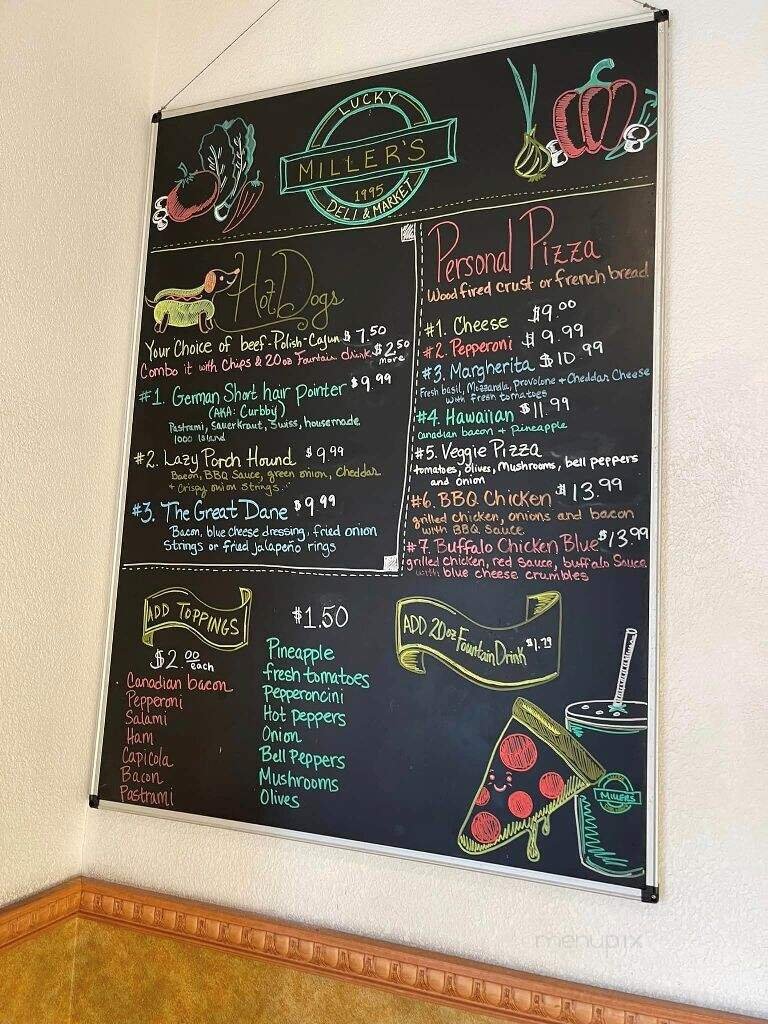 LUCKY
MILLER'S
1995
DELI & MARKET
Hot Dogs
Your Choice of beef-Polish-Cajun $7.50
Combo it with Chips & 20oz Fountain drink $2.50
more
#1. German Short hair Pointer $9.99
(AKA: Curbby)
Pastrami, Sauerkraut, Swiss, housemade
1000 Island
#2. Lazy Porch Hound $9.99
Bacon, BBQ Sauce, green onion, Cheddar
+ Crispy onion strings...
#3. The Great Dane $9.99
Bacon, blue cheese dressing, fried onion
Strings or fried jalapeño rings
Personal Pizza
Wood fired crust or french bread
#1. Cheese $9.00
#2. Pepperoni $9.99
#3. Margherita $10.99
Fresh basil, Mozzarella, Provolone + Cheddar Cheese
with fresh tomatoes
#4. Hawaiian $11.99
Canadian bacon + Pineapple
#5. Veggie Pizza
tomatoes, olives, Mushrooms, bell peppers
and onion
#6. BBQ Chicken $13.99
grilled chicken, onions and bacon
with BBQ Sauce
#7. Buffalo Chicken Blue $13.99
grilled chicken, red sauce, buffalo Sauce
with blue cheese crumbles
ADD TOPPINGS
$2.00 each
Canadian bacon
Pepperoni
Salami
Ham
Capicola
Bacon
Pastrami
$1.50
Pineapple
fresh tomatoes
Pepperoncini
Hot peppers
Onion
Bell Peppers
Mushrooms
Olives
ADD 20oz Fountain Drink
MILLER'S
menupix